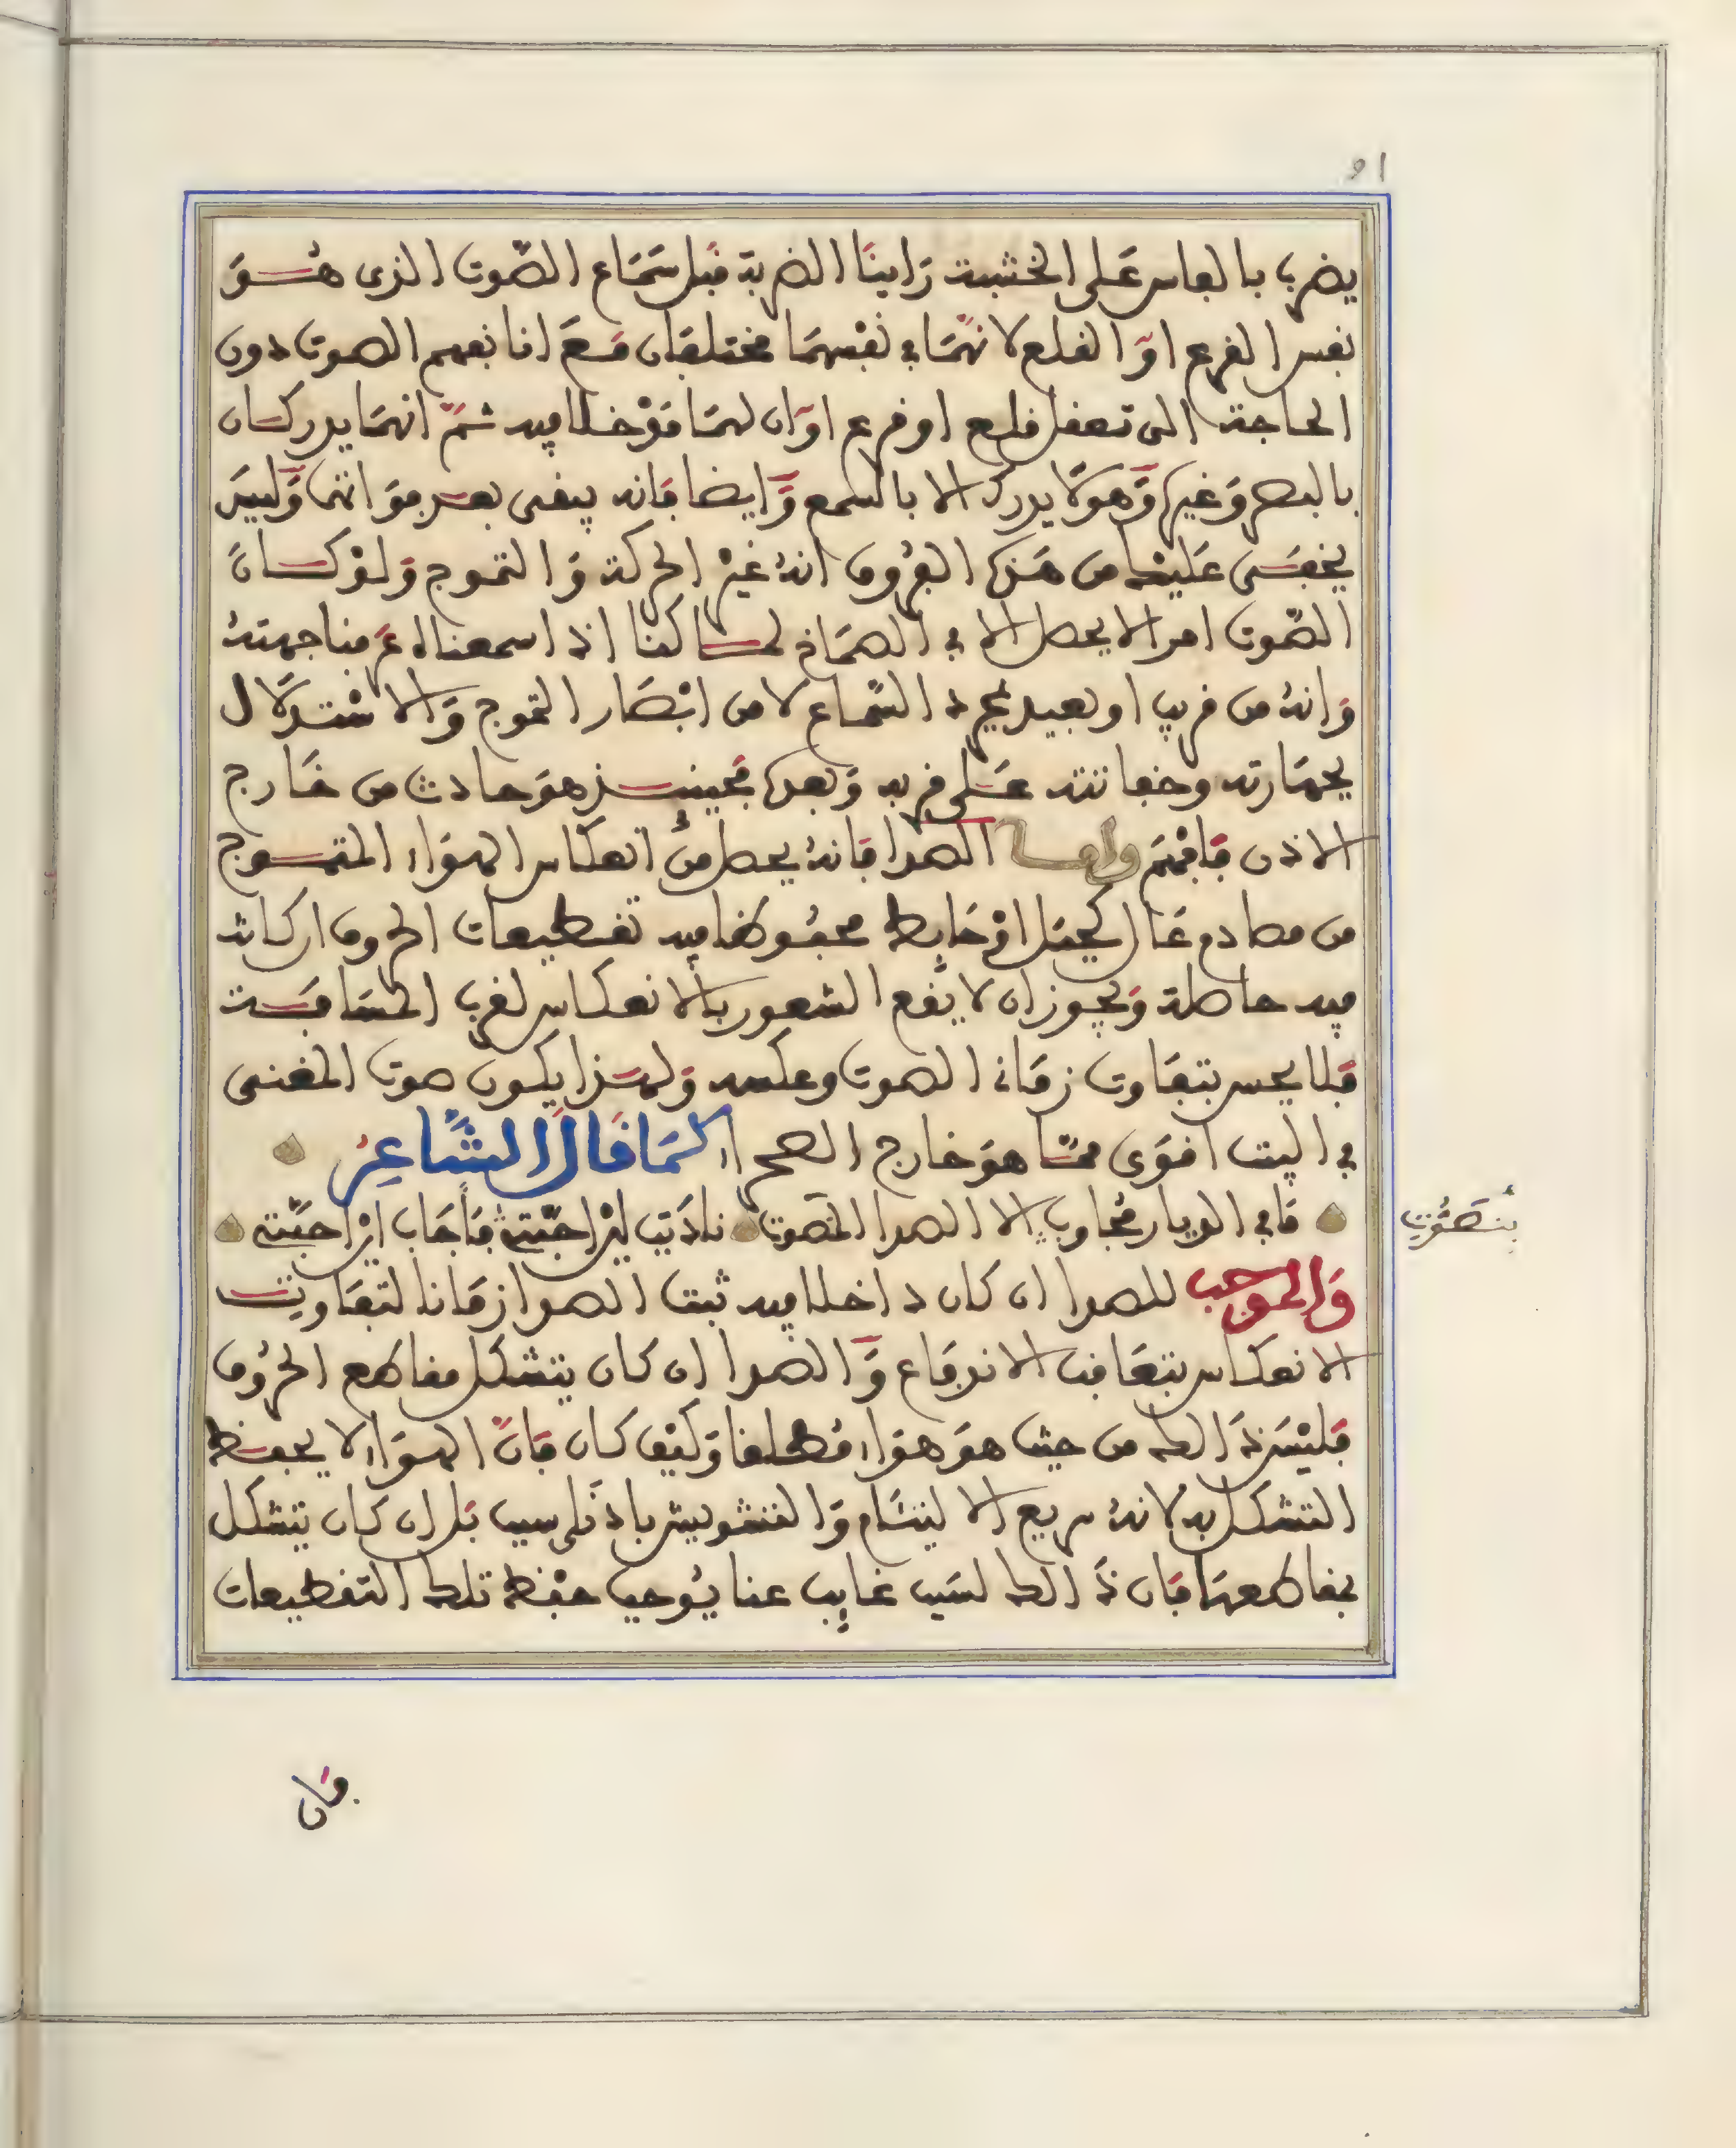 يضرب بالفاس على الخشبة راينا الضربة قبل سماع الصّوت الذى هُـو
نفس القرع او القلع لانهما في نفسهما مختلفان مع انا نفهم الصوت دون
الحاجة الى تعقل قلع او قرع او ان لهما مدخلا فيه ثمّ انهما يدركان
بالبصر وغيره وهو لا يدرك الا بالسمع وايضا فانه يبقى بعد فواتهما وليس
يخفى عليك من هذه الفروق انهُ غير الحركة والتموج ولو كـان
الصّوت امرا لا يحصل الا في الصماخ لمـا كنا اذا سمعناه عرفنا جهتهُ
وانهُ من قريب او بعيد بمجرد السّماع لا من ابْصار التموج والاستدلال
بجهارته وخفاتته على قربه وبعده فحينئـذ هو حادث من خارج
الاذن فافهم وامـا الصدا فانهُ يحصل من انعكاس الهواء المتمـوج
من مصادم عال كجبل او حايط محفوظا فيه تقطيعات الحروف ان كانت
فيه حاصلة ويجوز ان لا يقع الشعور بالانعكاس لقرب المسافـة
فلا يحس بتفاوت زماني الصوت وعكسه ولهـذا يكون صوت المغنى
في البيت اقوى ممّا هو خارج الصحراء كما قال الشّاعر
ما في الديار مُجاوبٌ الا الصدا المصوت ناديت اين احبّتي فأجاب اين احبّتي
بتصوّت
والموجب للصدا ان كان داخلا فيه ثبت الصدا زمانا لتفاوت
الانعكاس بتعاقب الاندفاع والصدا ان كان يتشكل مقاطع الحروف
فليس ذالك من حيث هو هواء مطلقا وكيف كان فانّ الهواء لا يحفـظ
التشكل به لانهُ سريع الالتيام والتشويش باذنى سبب بل ان كان يتشكل
بمقاطعها فان ذالك لسبب غايب عنا يُوجب حفظ تلك التقطيعات
فان